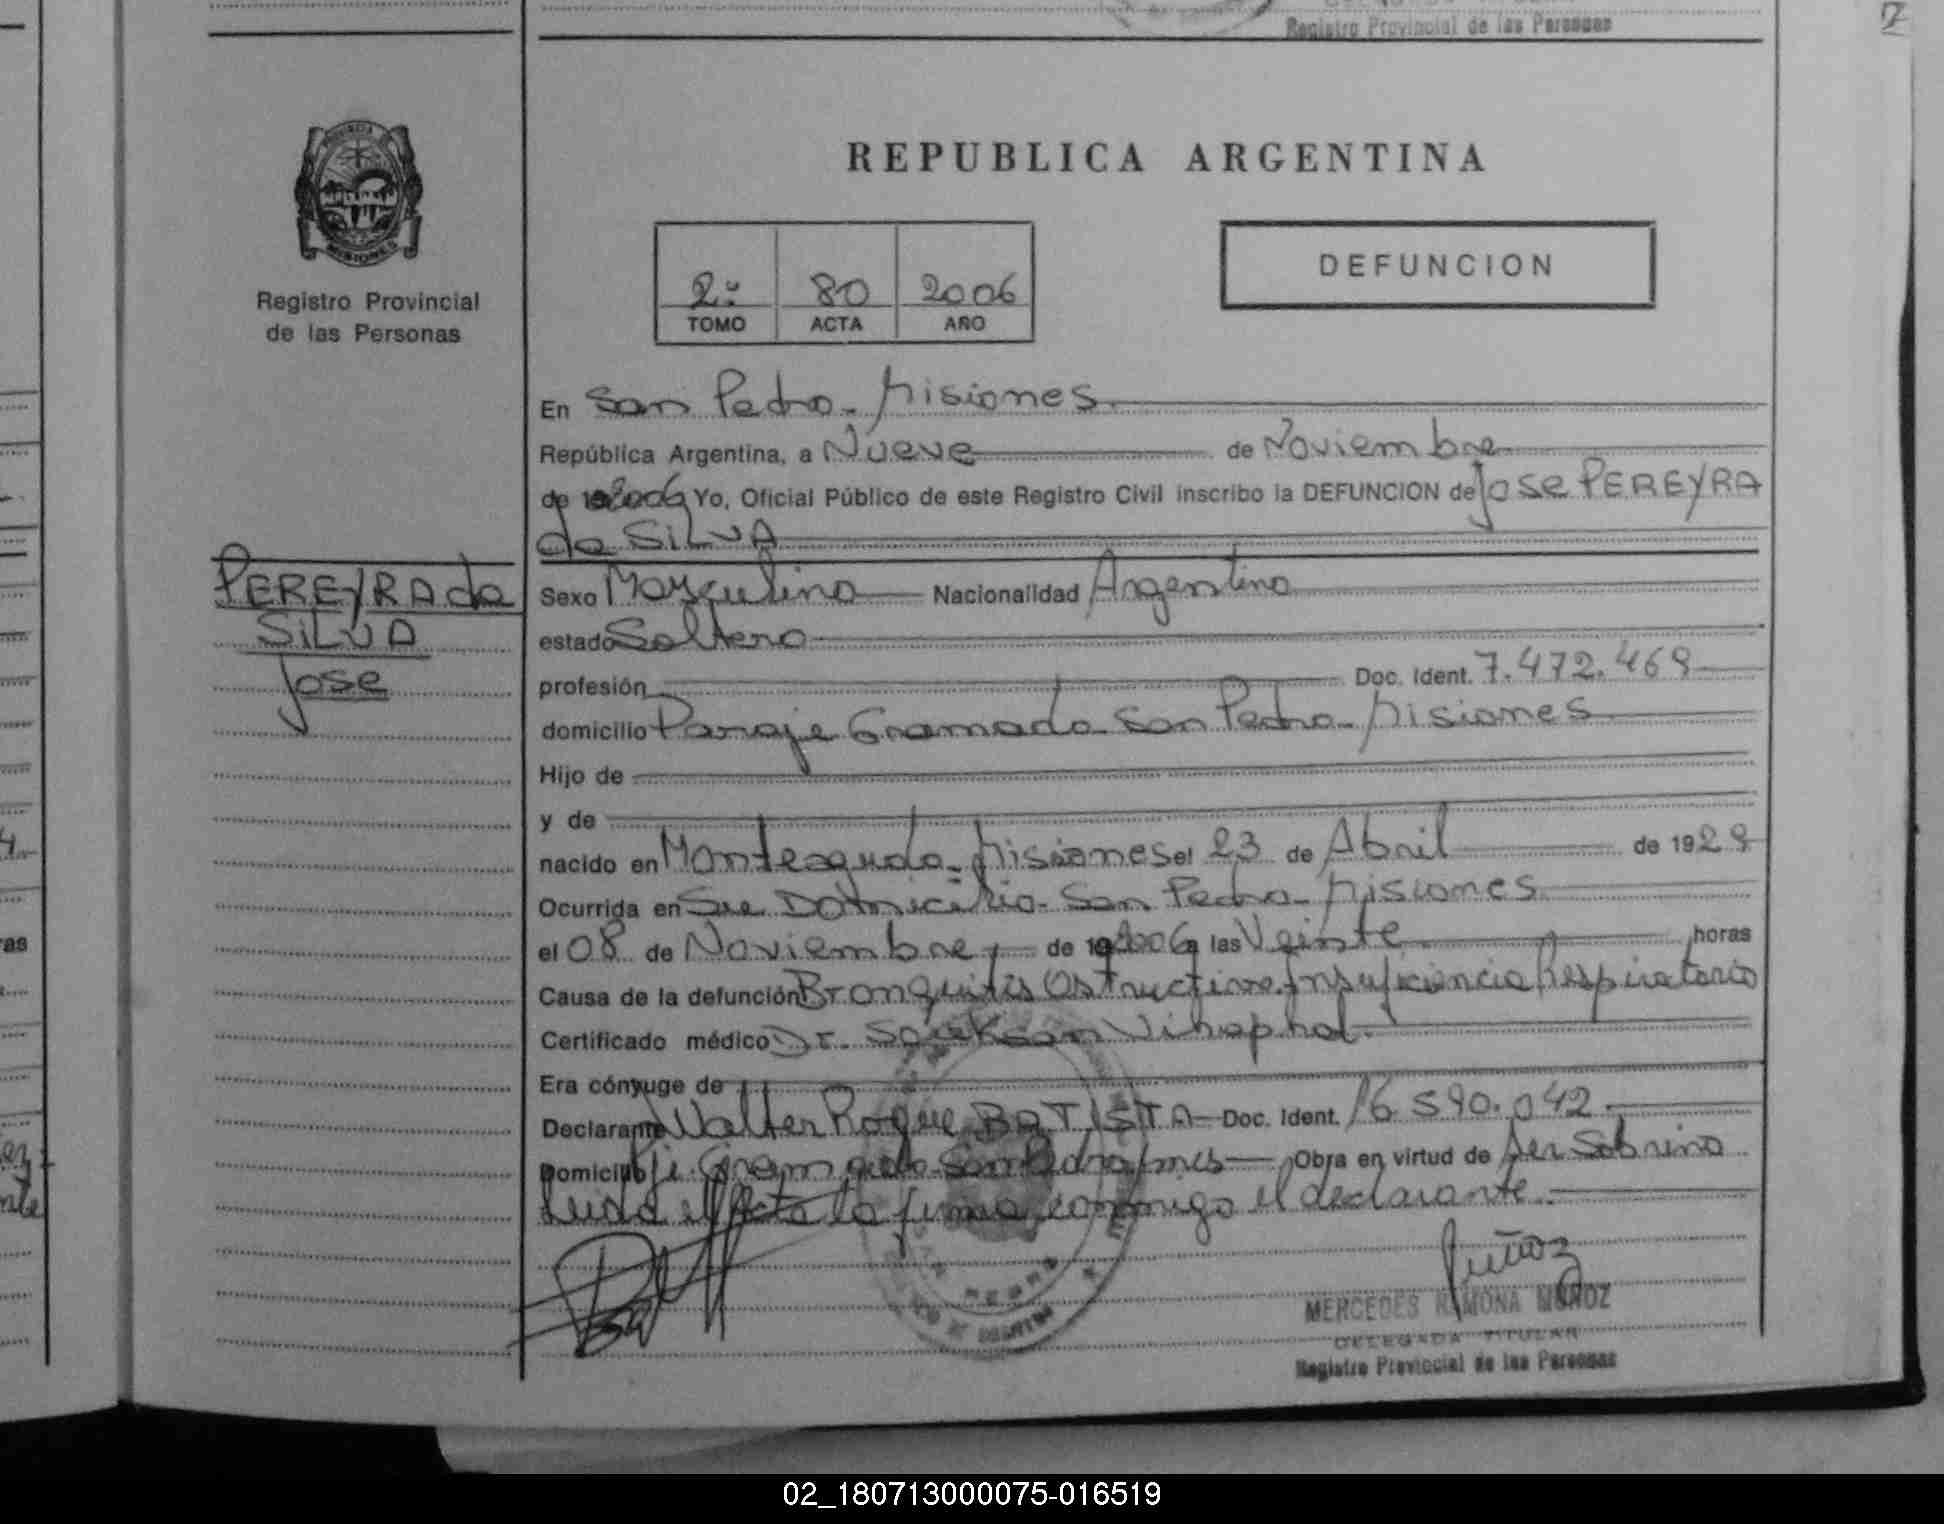 Registro Provincial de las Personas
REPUBLICA ARGENTINA
PROVINCIA DE
MISIONES
Registro Provincial
de las Personas
2º 80 2006
TOMO ACTA AÑO
DEFUNCION
En San Pedro - Misiones
República Argentina, a Nueve de Noviembre
de 2006 Yo, Oficial Público de este Registro Civil inscribo la DEFUNCION de Jose PEREYRA
da SILVA
PEREYRA da
SILVA
Jose
Sexo Masculino Nacionalidad Argentino
estado Soltero
profesión Doc. Ident. 7.472.469
domicilio Paraje Gramado San Pedro - Misiones
Hijo de
y de
nacido en Monteagudo - Misiones el 23 de Abril de 1929
Ocurrida en Su Domicilio - San Pedro - Misiones
el 08 de Noviembre de 2006 a las Veinte horas
Causa de la defunción Bronquitis Ostructiva. Insuficiencia Respiratoria
Certificado médico Dr.
Era cónyuge de
Declarante Walter Roque BATISTA Doc. Ident. 16.590.042
Domicilio Pje. Gramado San Pedro Mnes Obra en virtud de Ser Sobrino
Leida el Acta la firma conmigo el declarante.
Muñoz
MERCEDES RAMONA MUÑOZ
DELEGADA TITULAR
Registro Provincial de las Personas
02_180713000075-016519